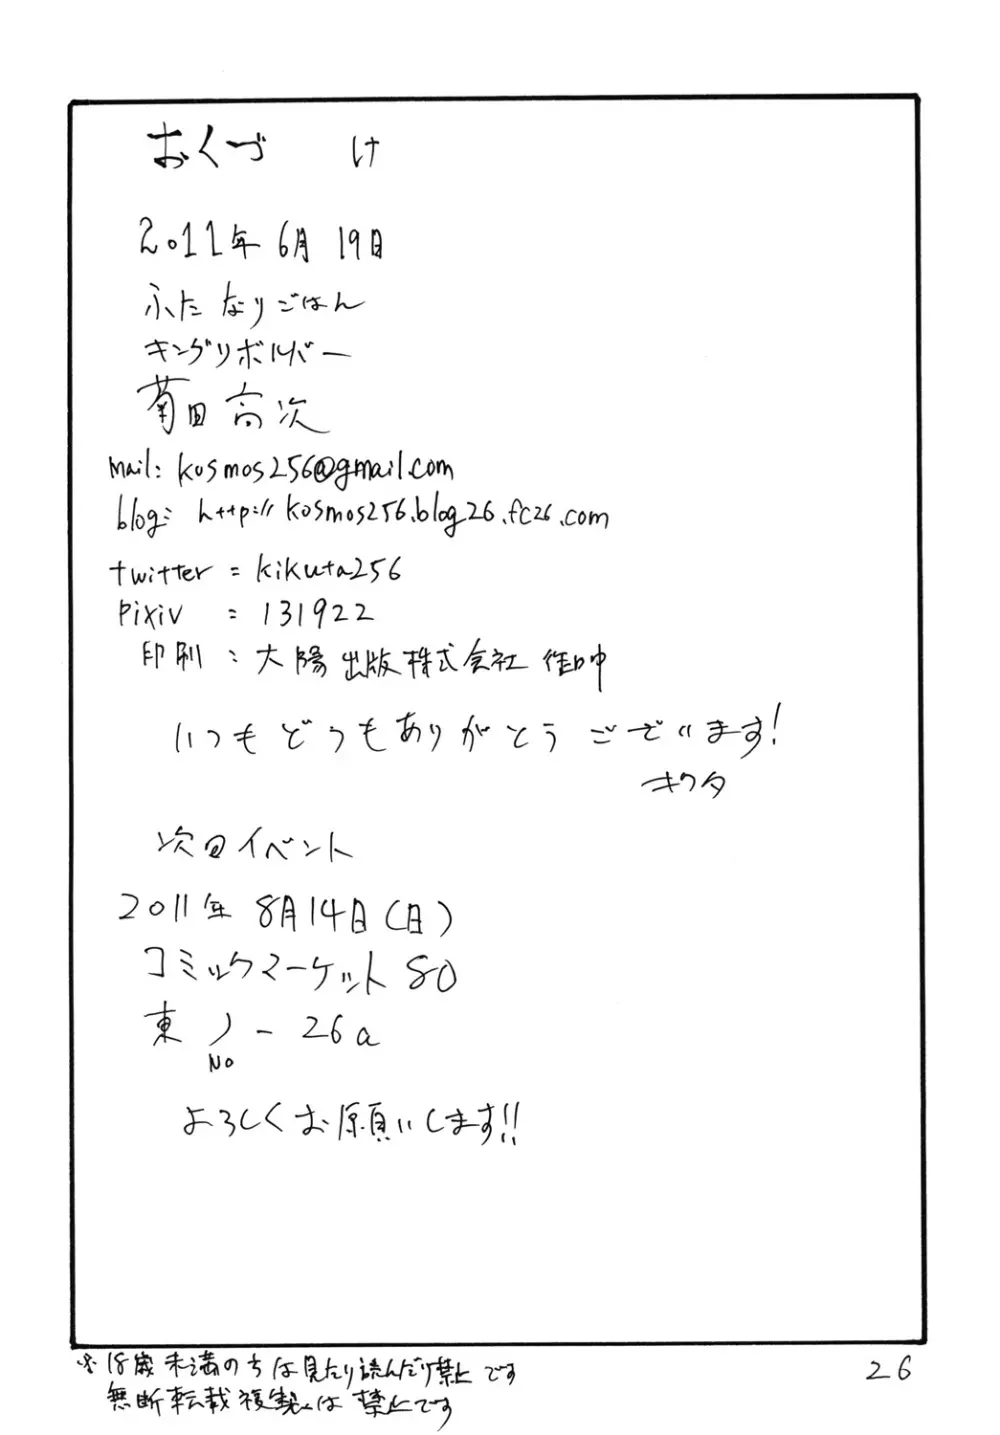 おくづけ
2011年6月19日
ふたなりごはん
キングリボルバー
菊田高次
mail: kosmos256@gmail.com
blog: http://kosmos256.blog26.fc26.com
twitter = kikuta256
pixiv : 131922
印刷：大陽出版株式会社 御中
いつもどうもありがとうございます!
キクタ
次回イベント
2011年 8月14日(日)
コミックマーケット80
東 ノ - 26a
No
よろしくお願いします!!
※18歳未満のちは見たり読んだり禁止です
無断転載複製は禁止です
26